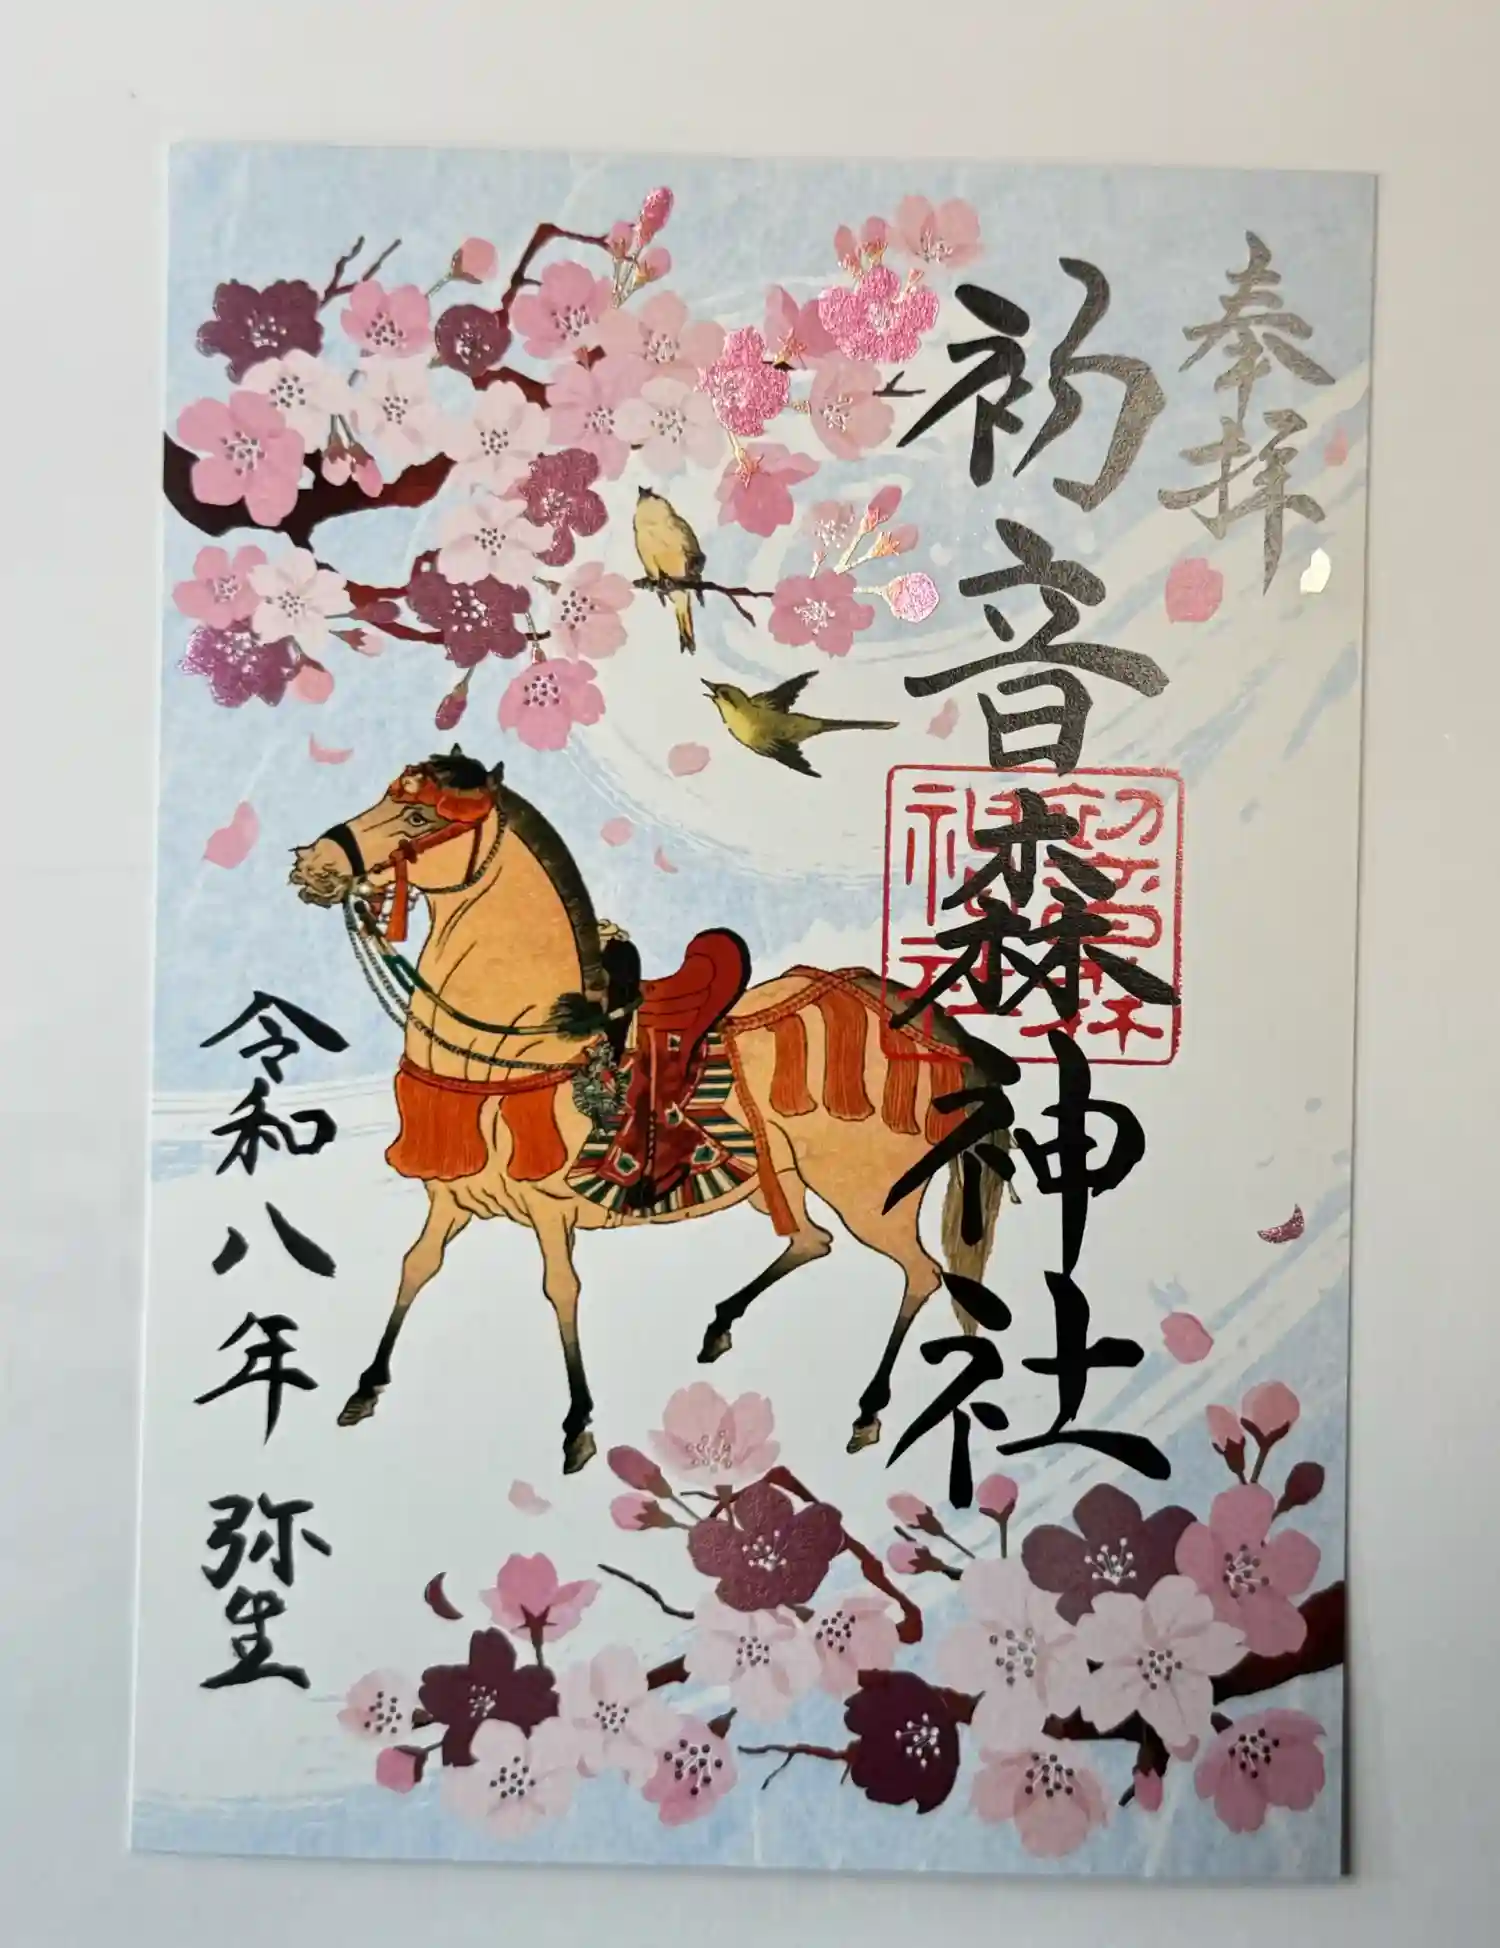 奉拝
初音森神社
初音森神社
令和八年 弥生